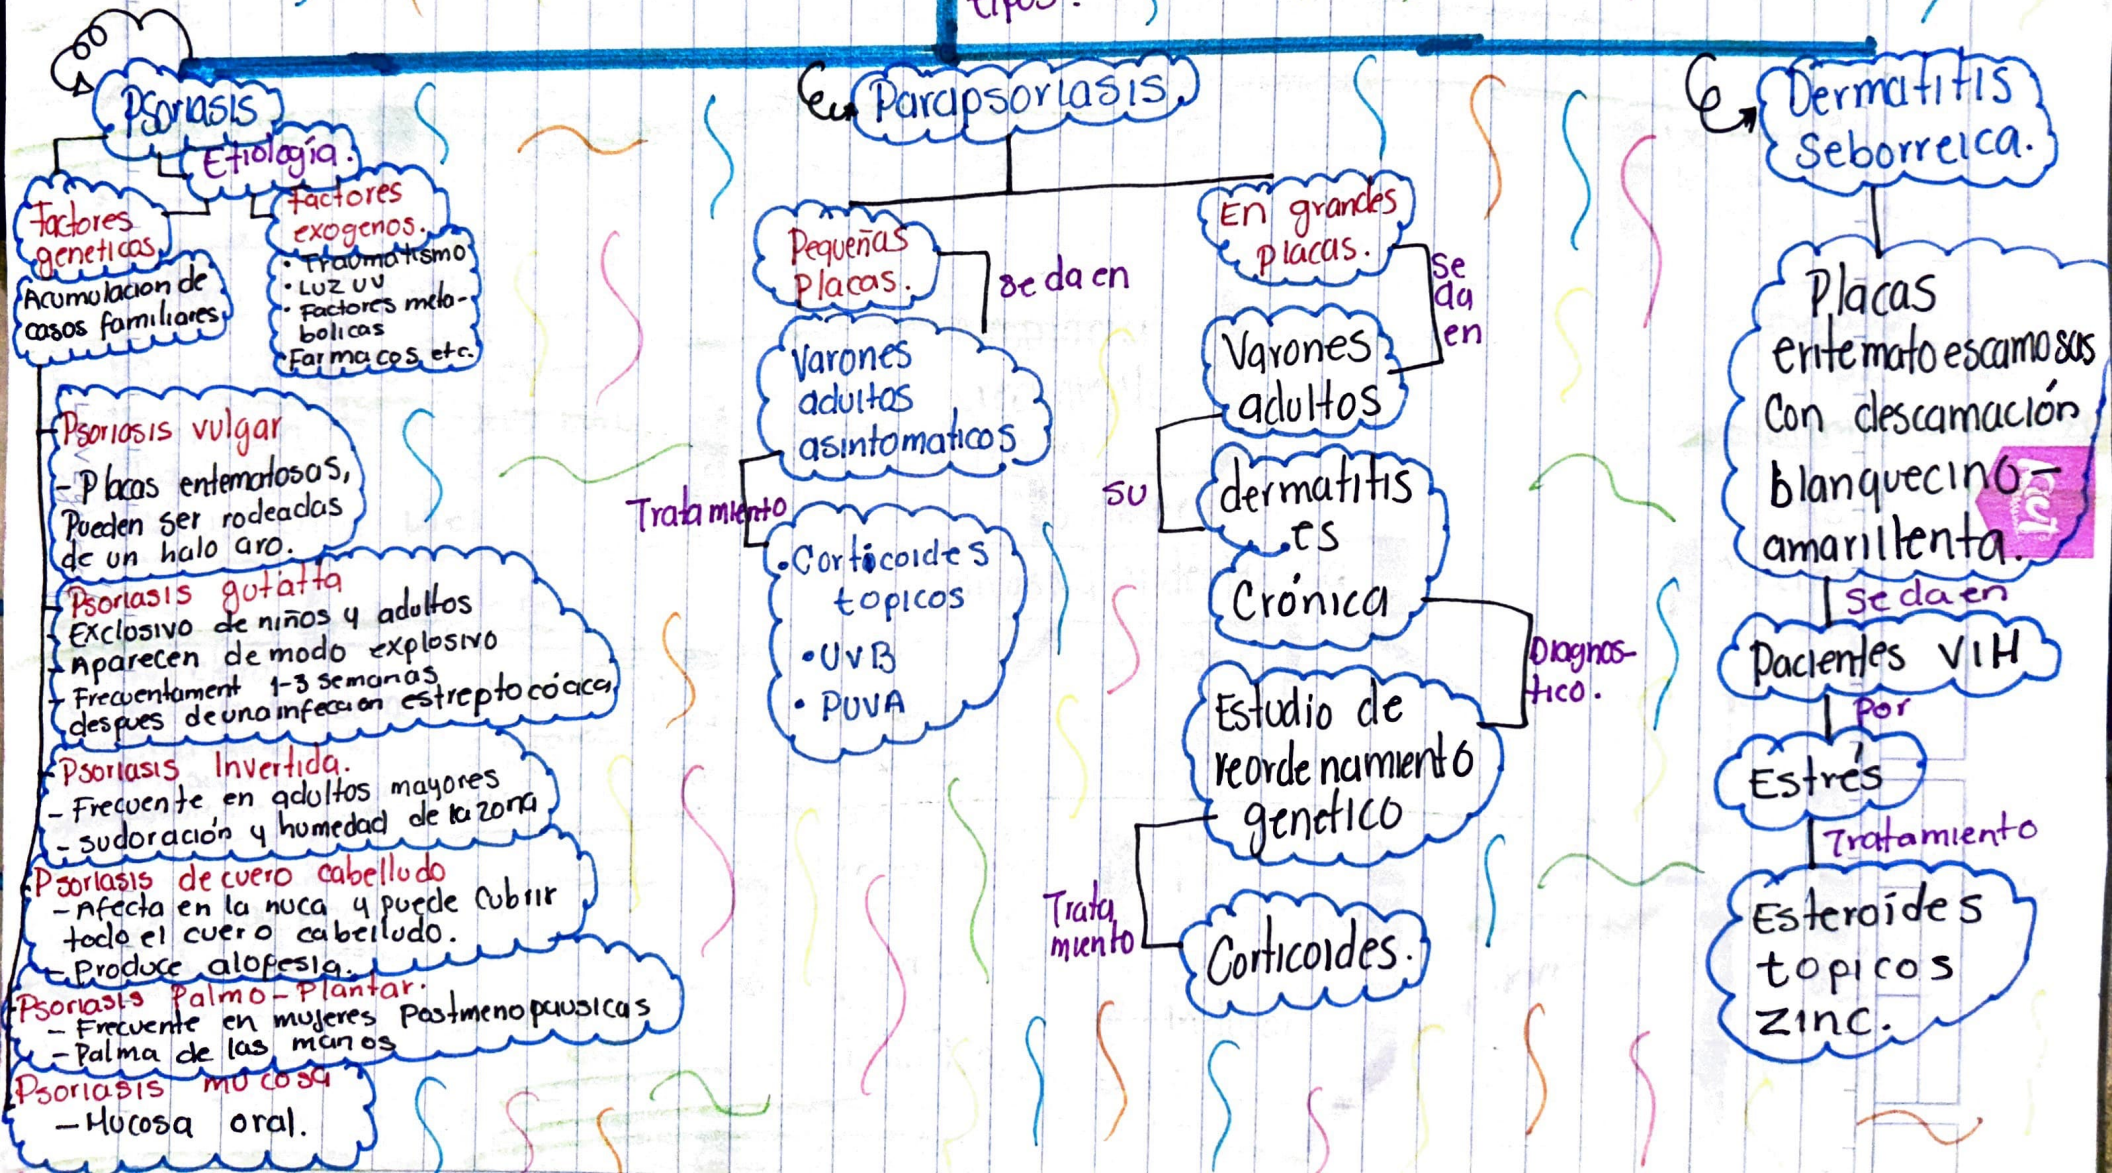 tipos.
Psoriasis
Etiología.
factores
geneticos
Acumulacion de
casos familiares
factores
exogenos.
• Traumatismo
• Luz UV
• Factores meta-
bolicas
• Farmacos, etc.
Psoriasis vulgar
- Placas eritematosas,
Pueden ser rodeadas
de un halo aro.
Psoriasis gutatta
Exclosivo de niños y adultos
- Aparecen de modo explosivo
- Frecuentament 1-3 semanas
despues de una infeccion estreptocócica
Psoriasis Invertida.
- Frecuente en adultos mayores
- sudoración y humedad de la zona
Psoriasis de cuero cabelludo
- Afecta en la nuca y puede cubrir
todo el cuero cabelludo.
- Produce alopesia.
Psoriasis Palmo-Plantar.
- Frecuente en mujeres Postmenopausicas
- Palma de las manos
Psoriasis mucosa
- Mucosa oral.
Parapsoriasis
Pequeñas
Placas.
se da en
Varones
adultos
asintomaticos
Tratamiento
• Corticoides
topicos
• UVB
• PUVA
En grandes
placas.
Se
da
en
Varones
adultos
su
dermatitis
es
Crónica
Diagnos-
tico.
Estudio de
reordenamiento
genetico
Trata
miento
Corticoides.
Dermatitis
Seborreica.
Placas
eritematoescamosas
Con descamación
blanquecino-
amarillenta.
Se da en
Pacientes VIH
Por
Estrés
Tratamiento
Esteroides
topicos
zinc.